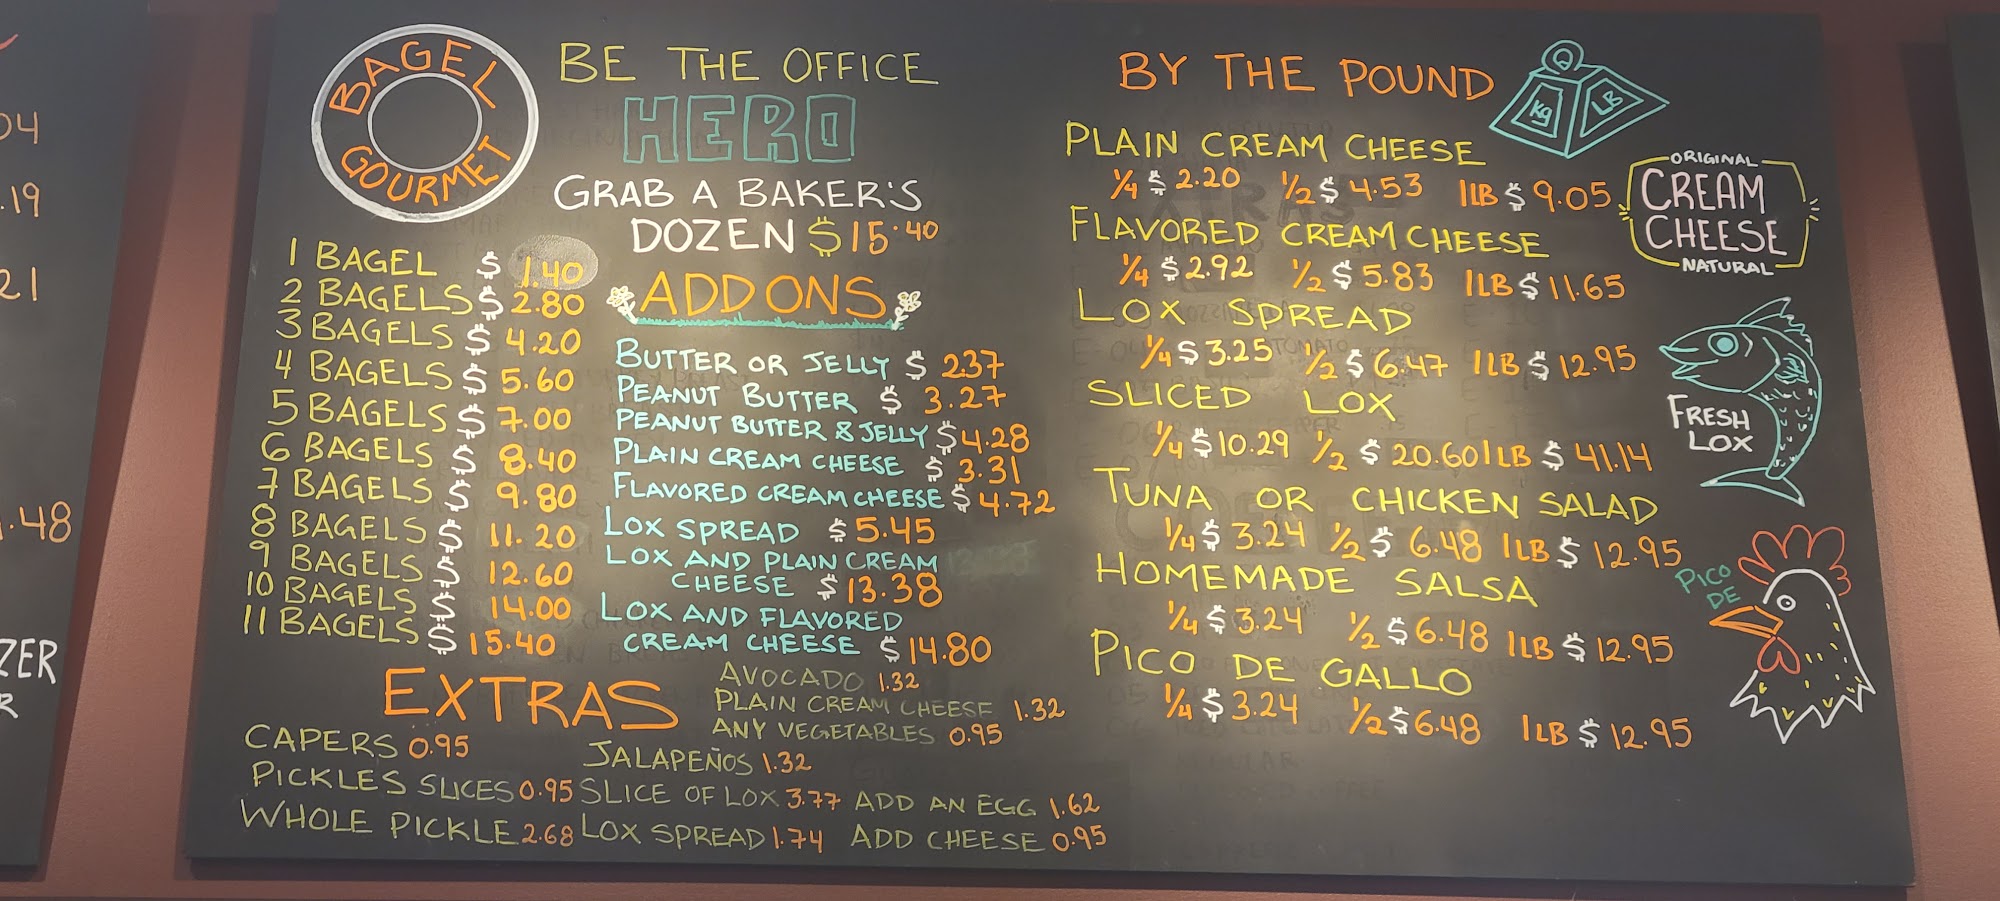 04
.19
21
.48
ZER
R
BAGEL
GOURMET
BE THE OFFICE
HERO
GRAB A BAKER'S
DOZEN $15.40
1 BAGEL $ 1.40
2 BAGELS $ 2.80
3 BAGELS $ 4.20
4 BAGELS $ 5.60
5 BAGELS $ 7.00
6 BAGELS $ 8.40
7 BAGELS $ 9.80
8 BAGELS $ 11.20
9 BAGELS $ 12.60
10 BAGELS $ 14.00
11 BAGELS $ 15.40
ADD ONS
BUTTER OR JELLY $ 2.37
PEANUT BUTTER $ 3.27
PEANUT BUTTER & JELLY $4.28
PLAIN CREAM CHEESE $ 3.31
FLAVORED CREAM CHEESE $ 4.72
LOX SPREAD $5.45
LOX AND PLAIN CREAM
CHEESE $13.38
LOX AND FLAVORED
CREAM CHEESE $14.80
EXTRAS
AVOCADO 1.32
PLAIN CREAM CHEESE 1.32
ANY VEGETABLES 0.95
CAPERS 0.95
JALAPEÑOS 1.32
PICKLES SLICES 0.95 SLICE OF LOX 3.77 ADD AN EGG 1.62
WHOLE PICKLE 2.68 LOX SPREAD 1.74 ADD CHEESE 0.95
BY THE POUND
Kg LB
PLAIN CREAM CHEESE
1/4 $ 2.20 1/2 $ 4.53 1LB $ 9.05
FLAVORED CREAM CHEESE
1/4 $ 2.92 1/2 $ 5.83 1LB $ 11.65
LOX SPREAD
1/4 $ 3.25 1/2 $ 6.47 1LB $ 12.95
SLICED LOX
1/4 $ 10.29 1/2 $ 20.60 1LB $ 41.14
TUNA OR CHICKEN SALAD
1/4 $ 3.24 1/2 $ 6.48 1LB $ 12.95
HOMEMADE SALSA
1/4 $ 3.24 1/2 $ 6.48 1LB $ 12.95
PICO DE GALLO
1/4 $ 3.24 1/2 $ 6.48 1LB $ 12.95
ORIGINAL
CREAM
CHEESE
NATURAL
FRESH
LOX
PICO
DE